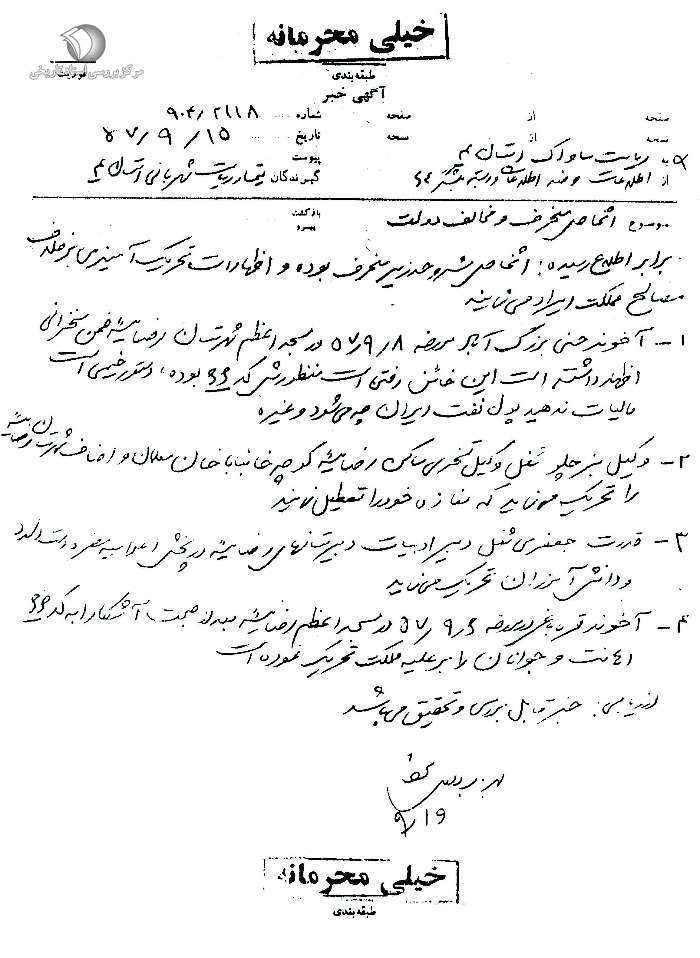 خیلی محرمانه
طبقه بندی
مرکز بررسی اسناد تاریخی
آگهی خبر
صفحه از صفحه شماره ۹۰۴/۲۱۱۸
نسخه از نسخه تاریخ ۵۷/۹/۱۵
به ریاست ساواک استان پیوست
از اطلاعات گیرندگان ریاست شهربانی استان
بازگشت
پیرو
موضوع اشخاص منحرف و مخالف دولت
برابر اطلاع رسیده: اشخاص مشروحه زیر منحرف بوده و اظهارات تحریک آمیزی بر خلاف
مصالح مملکت ایراد می نمایند
۱- آخوند حسنی بزرگ آباد مورخه ۵۷/۹/۸ در مسجد اعظم شهرستان رضائیه ضمن سخنرانی
اظهار داشته است این خائن رفتنی است منظورش کد ۶۶ بوده،
مالیات ندهید پول نفت ایران چه می شود و غیره
۲- وکیل شغل وکیل ساکن رضائیه کوچه خانباباخان و اصناف شهرستان رضائیه
را تحریک می نماید که مغازه خود را تعطیل نمایند
۳- قدرت جعفری شغل دبیر ادبیات دبیرستانهای رضائیه در پخش اعلامیه مضره دست دارد
و دانش آموزان تحریک می نماید
۴- آخوند مورخه ۵۷/۹/۶ در مسجد اعظم رضائیه بعد از صحبت آشکارا به کد ۶۶
اهانت و جوانان را بر علیه مملکت تحریک نموده است
ارزیابی: خبر قابل بررسی و تحقیق می باشد
۹/۱۹
خیلی محرمانه
طبقه بندی